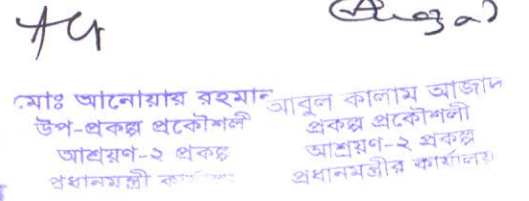 মোঃ আনোয়ার রহমান
উপ-প্রকল্প প্রকৌশলী
আশ্রয়ণ-২ প্রকল্প
প্রধানমন্ত্রী কার্যালয়
আবুল কালাম আজাদ
প্রকল্প প্রকৌশলী
আশ্রয়ণ-২ প্রকল্প
প্রধানমন্ত্রীর কার্যালয়